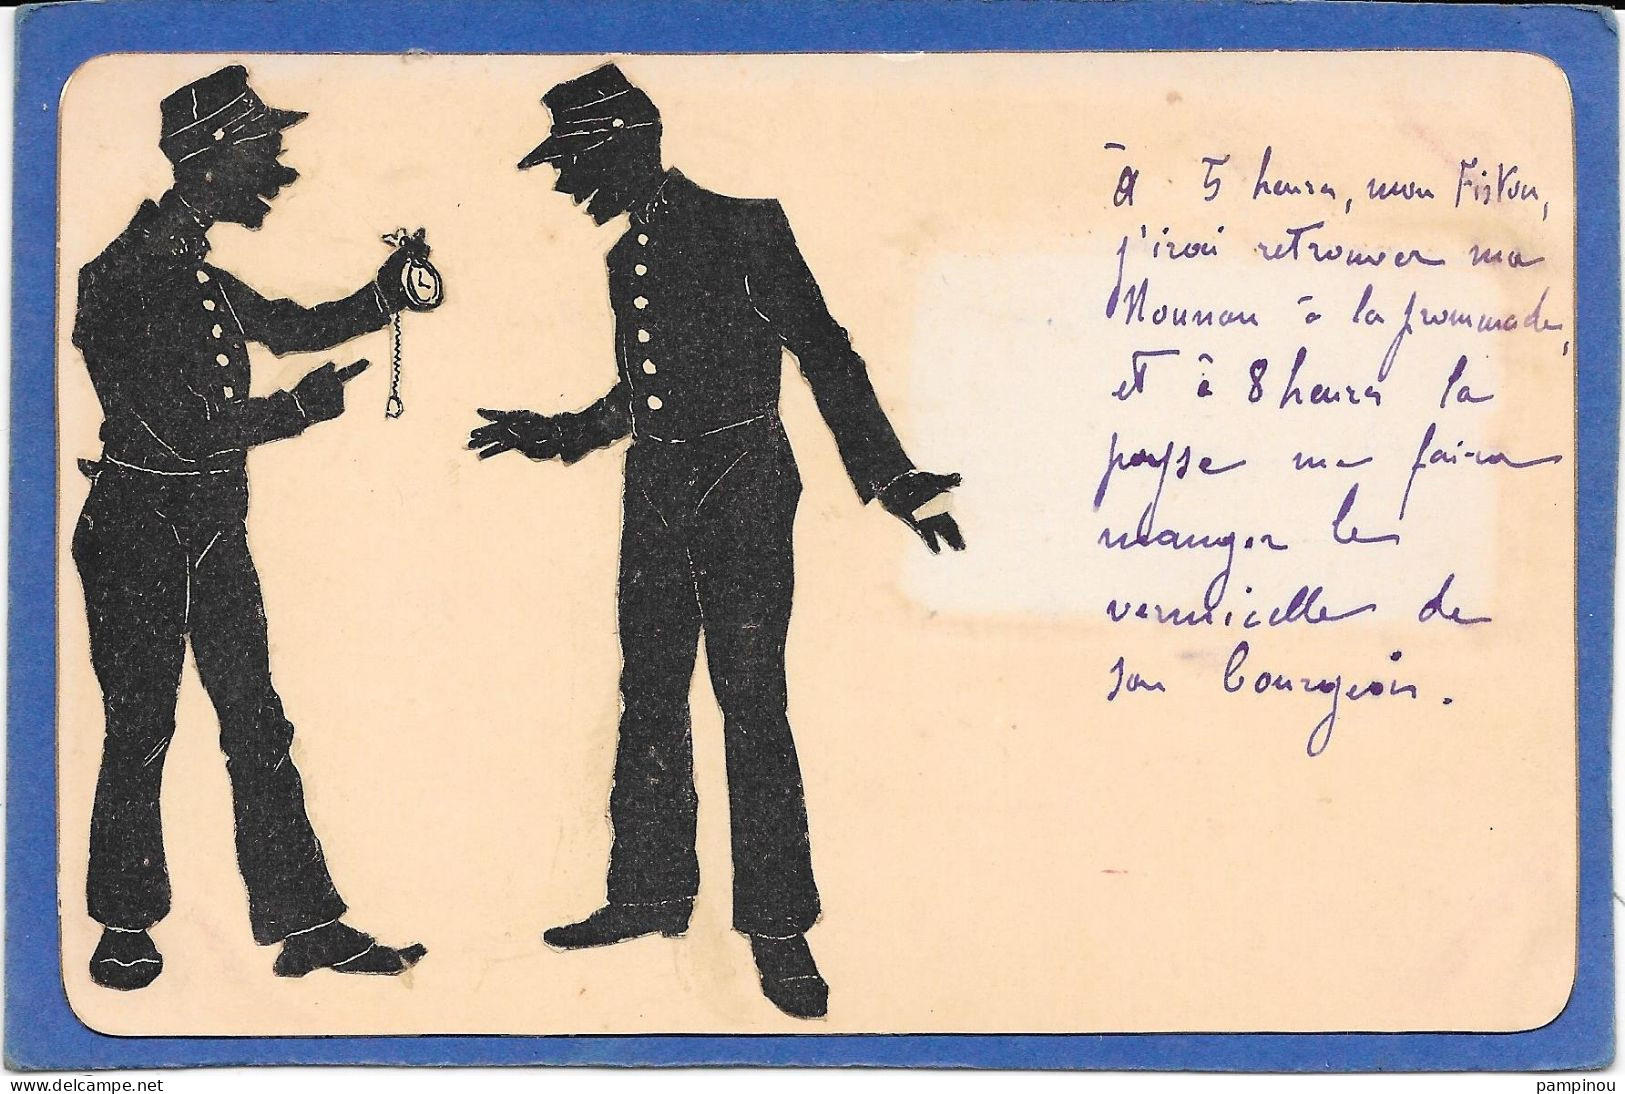 à 5 heures, mon Fiston,
j'irai retrouver ma
Nounou à la prommade,
et à 8 heures la
payse me faira
manger le
vermicelle de
son bourgeois.
www.delcampe.net
pampinou